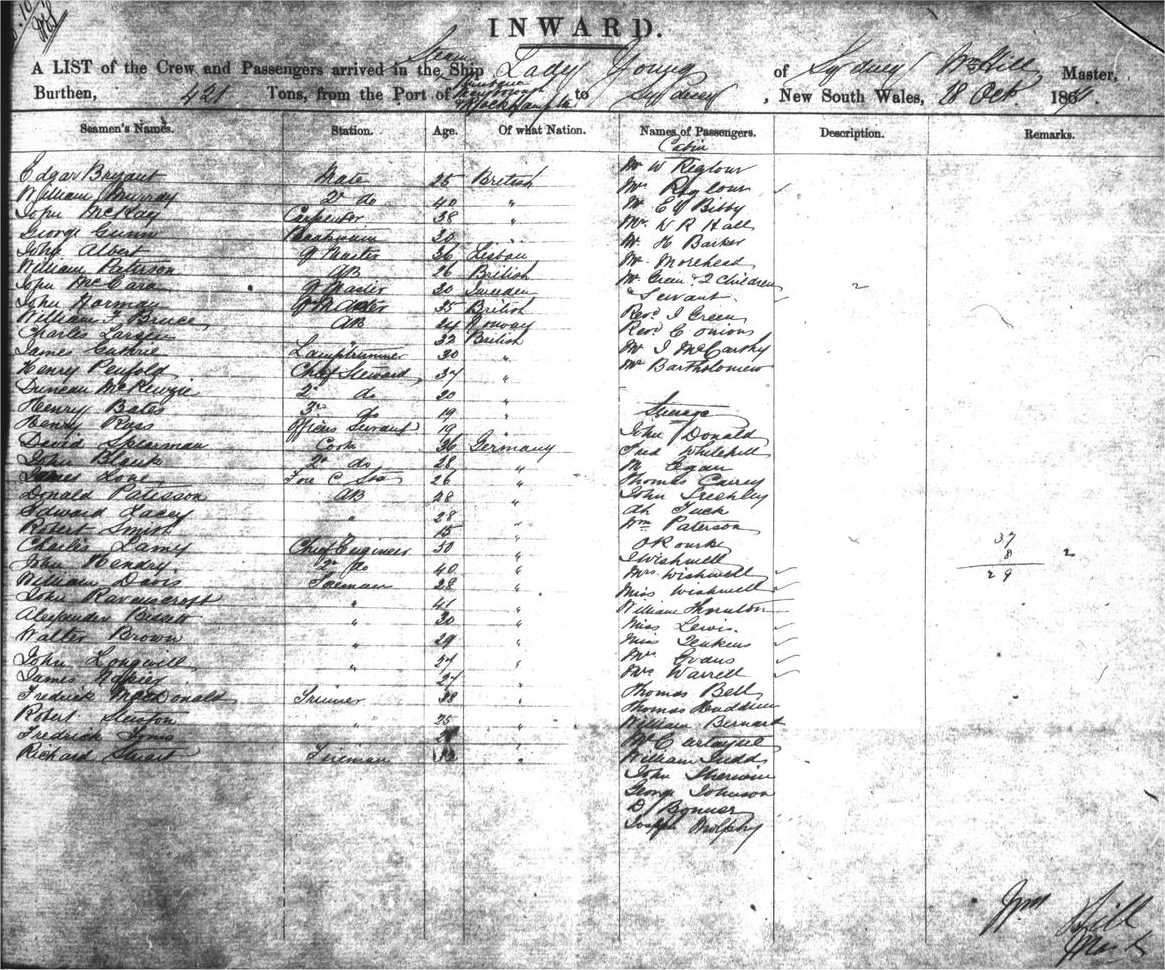 INWARD.
Steam
A LIST of the Crew and Passengers arrived in the Ship Lady Young of Sydney Wm Hill Master,
Burthen, 421 Tons, from the Port of Maryborough & Rockhampton to Sydney, New South Wales, 28 Oct. 1864.
Seamen's Names. Station. Age. Of what Nation. Names of Passengers. Description. Remarks.
Cabin
Edgar Bryant Mate 25 British
William Murray 2d do 40 "
John McKay Carpenter 38 "
George Gunn 30 "
John Albert Q Master 36 Lisbon
William Paterson AB 26 British
John McCara Q Master 30 Sweden
John Harman Q Master 25 British
William J Bruce AB 24 Norway
Charles Larsen " 32 British
James Guthrie Lamptrimmer 30 "
Henry Penfold Chief Steward 37 "
Duncan McKenzie 2d do 20 "
Henry Bates 3rd do 19 "
Henry Ross Officers Servant 19 "
David Spearman Cook 36 Germany
John Blank 2d do 28 "
James Love Fore C Std 26 "
Donald Paterson AB 28 "
Edward Lacey " 28 "
Robert Smith 15 "
Charles Lamy Chief Engineer 50 "
John Hendry 2d do 40 "
William Davis Fireman 28 "
John Ravenscroft " 41 "
Alexander " 30 "
Walter Brown " 29 "
John Longwill " 27 "
James Napier 27 "
Fredrick MacDonald Trimmer 38 "
Robert " 25 "
Fredrick
Richard Stuart Fireman "
Mr W Reglour
Mrs Reglour
Mr E J Bibby
Mr W R Hall
Mr H Barker
Mr Morehead
Mrs Green 2 Children 2
& Servant
Revd J Green
Revd C Onions
Mr J McCarthy
Mr Bartholomew
Steerage
John Donald
Whitehill
M Egan
Thomas Carrey
John
Ah Tuck
Wm Paterson
O Rourke
J Wishwell
Mrs Wishwell
Miss Wishwell
William Thornton
Miss Lewis
Miss Jenkins
Mrs Evans
Mrs Warrell
Thomas Bell
Thomas
William Bernard
Mr C
William Judd
John Sherwin
George Johnson
D Bonner
Joseph
37
8 2
29
Wm Hill
Master